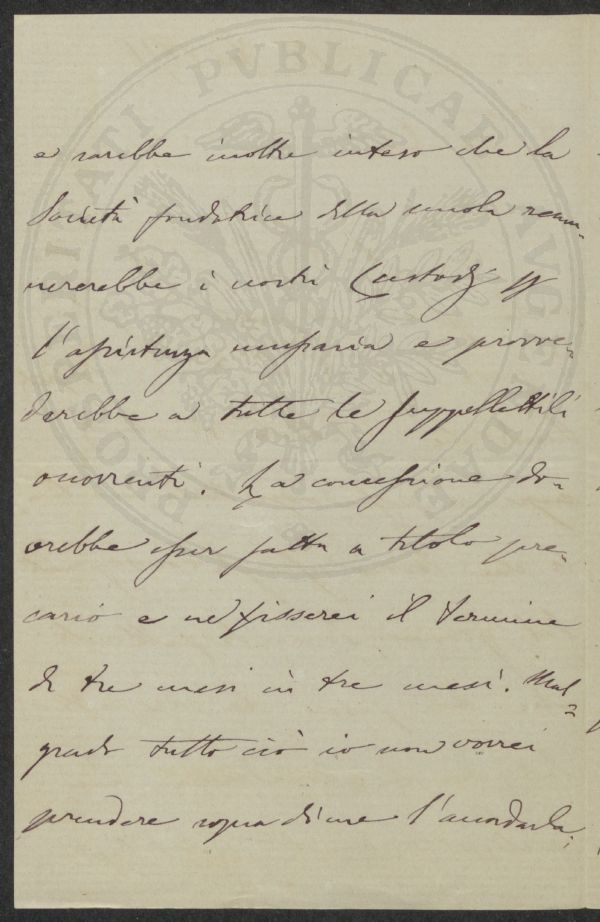 PROSPERITATI PVBLICAE AVGENDAE
e sarebbe inoltre inteso che la
Società fondatrice della scuola remu-
nererebbe i nostri Custodi p
l'assistenza necessaria e provve-
derebbe a tutte le suppellettili
occorrenti. La concessione do-
vrebbe esser fatta a titolo pre-
cario e ne fisserei il termine
di tre mesi in tre mesi. Mal-
grado tutto ciò io non vorrei
prendere sopra di me l'accordarla;